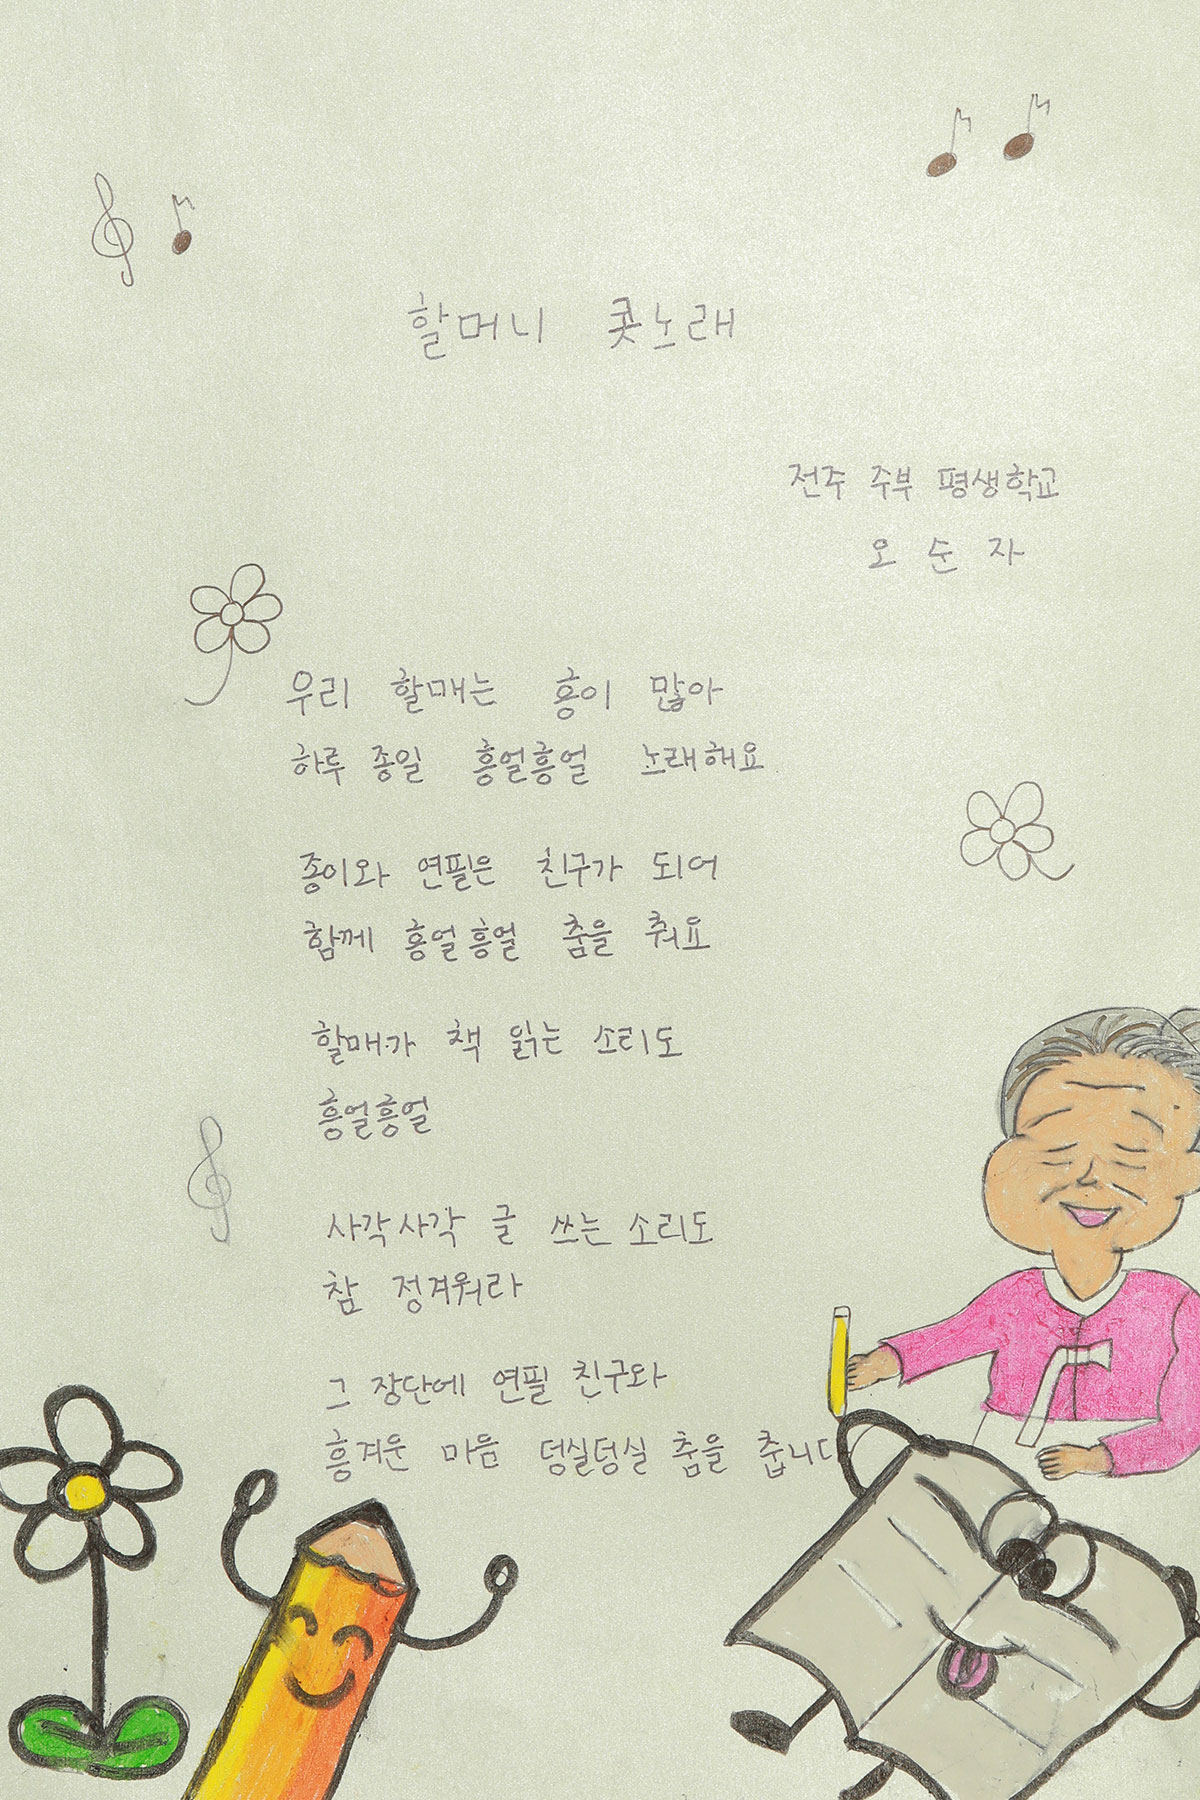 할머니 콧노래
전주 주부 평생학교
오순자
우리 할매는 흥이 많아
하루 종일 흥얼흥얼 노래해요
종이와 연필은 친구가 되어
함께 흥얼흥얼 춤을 춰요
할매가 책 읽는 소리도
흥얼흥얼
사각사각 글 쓰는 소리도
참 정겨워라
그 장단에 연필 친구와
흥겨운 마음 덩실덩실 춤을 춥니다